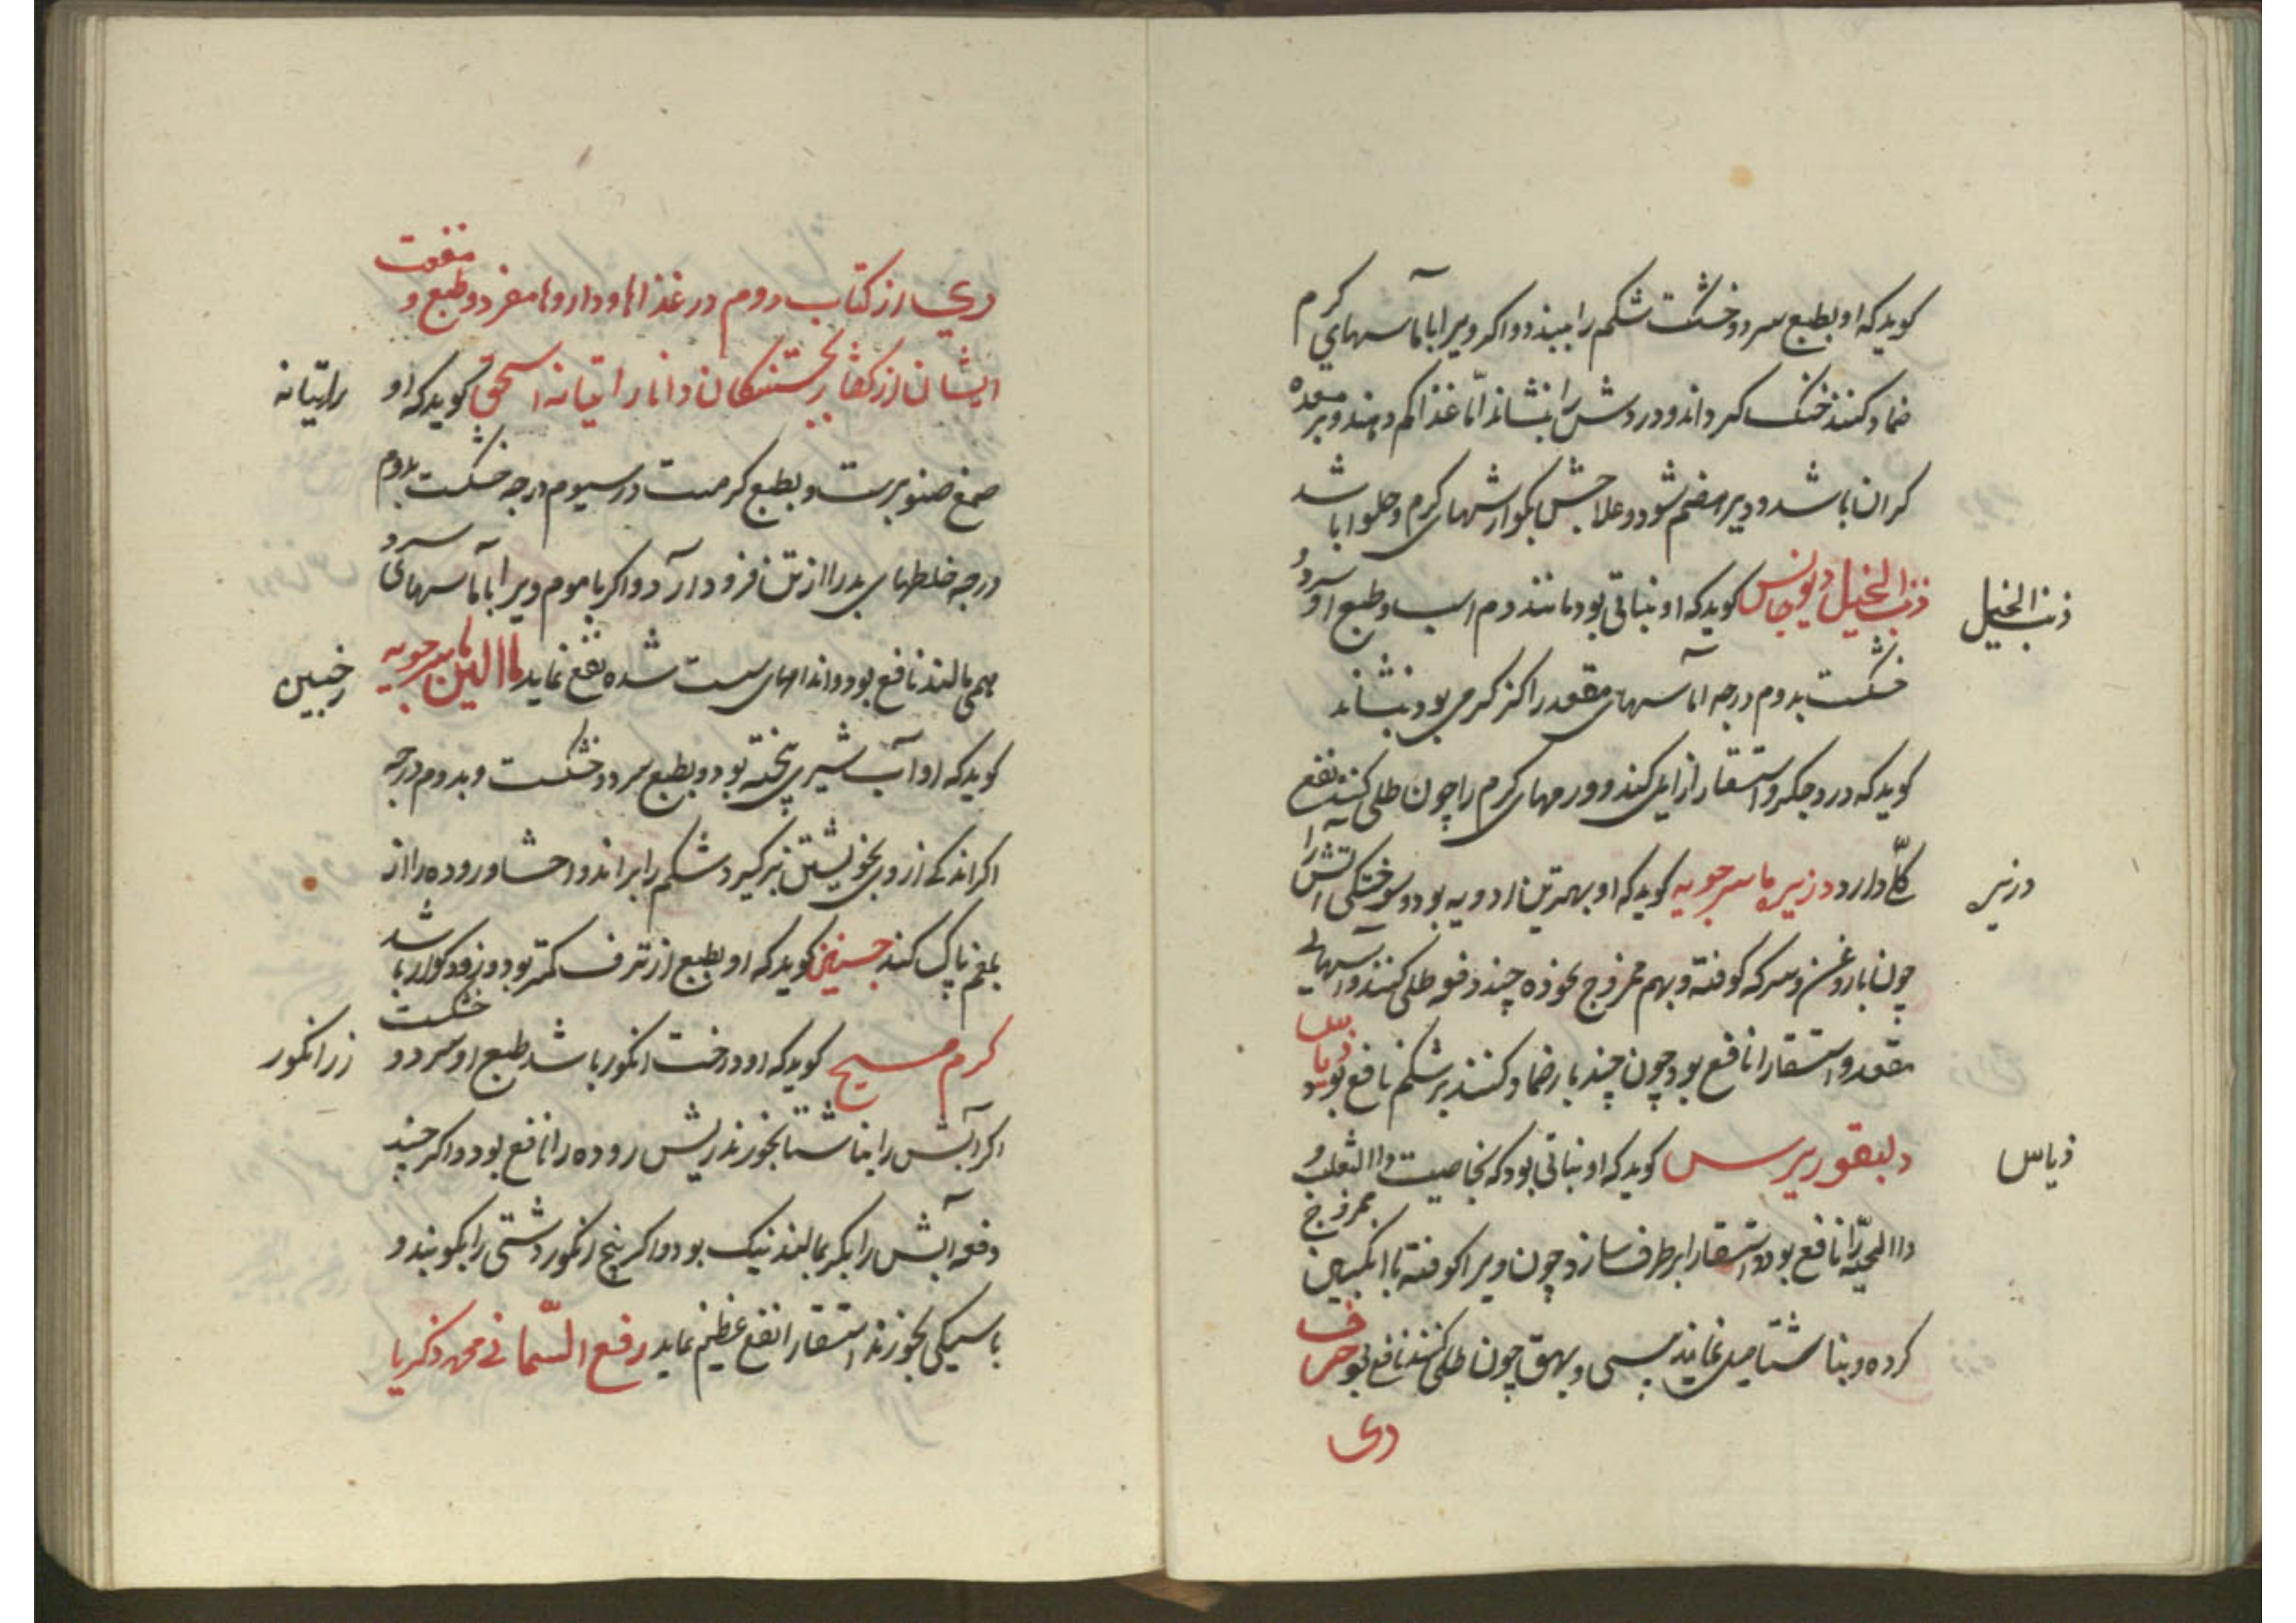 کویدکه او بطبع سرد و خشکست شکم را ببندد و اکر ویرا باماسهای کرم
ضماد کنند خنک کرداند و دردش را بنشاند امّا غذا کم دهند و بر معده
کران باشد و دیر هضم شود و علاجش بکوارشهای کرم و حلوا باشد
ذنب الخیل دیوجانس کویدکه او نباتی بود مانند دم اسب و طبع او سرد و
ذنب الخیل
خشکست بدوم درجه اماسهای مقعد را کز کرمی بود بنشاند
کویدکه درد جکر و استسقا را زایل کند و ورمهای کرم را چون طلی کنند نفع
کلّی دارد دزنیره ماسرجویه کویدکه او بهترین ادویه بود و سوختکی آتش را
درنیره
چون با روغن و سرکه کوفته و بهم ممزوج نموده چند دفعه طلی کنند و آسهای
مقعد و استسقا را نافع بود چون چند بار ضماد کنند بر شکم نافع بود ذیاس
دلیقوریرس کویدکه او نباتی بود که بخاصیت داالثعلب و
ذیاس
داالحیّه را نافع بود و استسقا را برطرف سازد چون ویرا کوفته با انکبین ممزوج
کرده و بناشتا میل نمایند پیسی و بهق چون طلی کنند نافع بود حرف
دی
ری از کتاب دوم در غذاها و داروها مفرد و طبع و منفعت
ایشان از کفتار بخستنکان دانا راتیانه اسحق کویدکه او
راتیانه
صمغ صنوبرست و بطبع کرمست در سیوم درجه خشکست بدوم
درجه خلطهای بد را از تن فرود آرد و اکر با موم ویرا باماسهای سرد
همی مالند نافع بود و اندامهای سست شده نفع نماید ماالین ماسرجویه
رخبین
کویدکه او آب شیری پخته بود و بطبع سرد و خشکست و بدوم درجه
اکر اندکی از وی بخویشتن برکیرد شکم را براند و احشا و روده را از
بلغم پاک کند حسین کویدکه او بطبع از ترف کمتر بود و زود کوارد باشد
کرم مسیح کویدکه او درخت انکور باشد طبع او سرد و خشکست
زر انکور
اکر آبش را بناشتا بخورند ریش روده را نافع بود و اکر چند
دفعه آبش را بکر بمالند نیک بود و اکر بیخ انکور دشتی را بکوبند و
باسیکی بخورند استسقا را نفع عظیم نماید رفع السّمانی محمد ذکریا